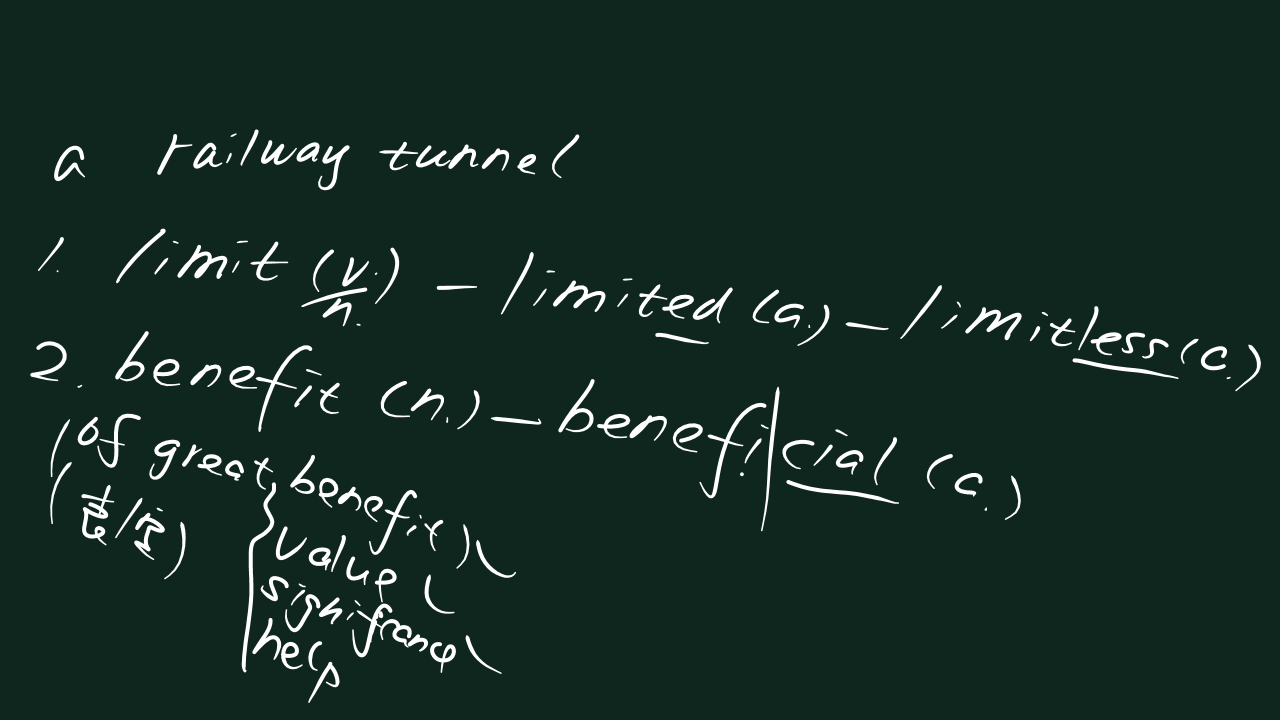 a railway tunnel
1. limit (v./n.) — limited (a.) — limitless (a.)
2. benefit (n.) — beneficial (a.)
(of great benefit)
value
significance
help